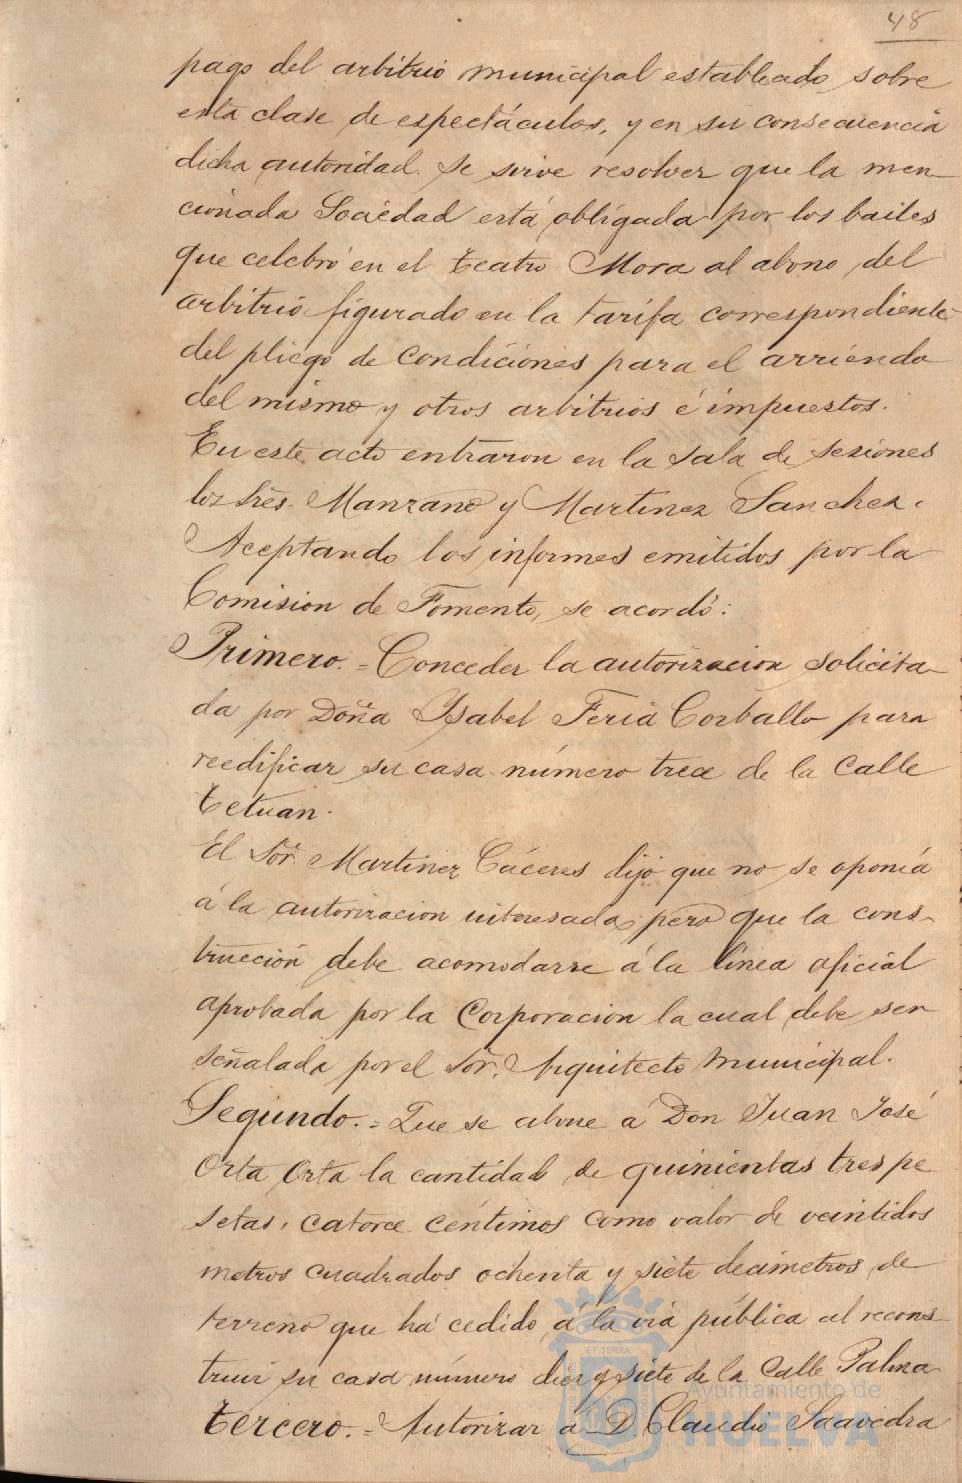 48
pago del arbitrio municipal establecido sobre
esta clase de espectáculos, y en su consecuencia
dicha autoridad se sirve resolver que la men-
cionada Sociedad está obligada por los bailes
que celebró en el teatro Mora al abono del
arbitrio figurado en la tarifa correspondiente
del pliego de condiciones para el arriendo
del mismo y otros arbitrios é impuestos.
En este acto entraron en la sala de sesiones
los Sres. Manzano y Martinez Sanchez.
Aceptando los informes emitidos por la
Comision de Fomento, se acordó:
Primero.= Conceder la autorizacion solicita-
da por Doña Ysabel Feria Corballo para
reedificar su casa número trece de la Calle
Tetuan.
El Sor. Martinez Cáceres dijo que no se oponía
á la autorizacion interesada; pero que la cons-
trucción debe acomodarse á la línea oficial
aprobada por la Corporacion la cual debe ser
señalada por el Sor. Arquitecto municipal.
Segundo.= Que se abone á Don Juan José
Orta Orta la cantidad de quinientas tres pe
setas, catorce céntimos como valor de veintidos
metros cuadrados ochenta y siete decímetros de
terreno que há cedido á la vía pública al recons-
truir su casa número diez y siete de la Calle Palma
Tercero.= Autorizar a D. Claudio Saavedra
ET TERRÆ
Ayuntamiento de
HUELVA